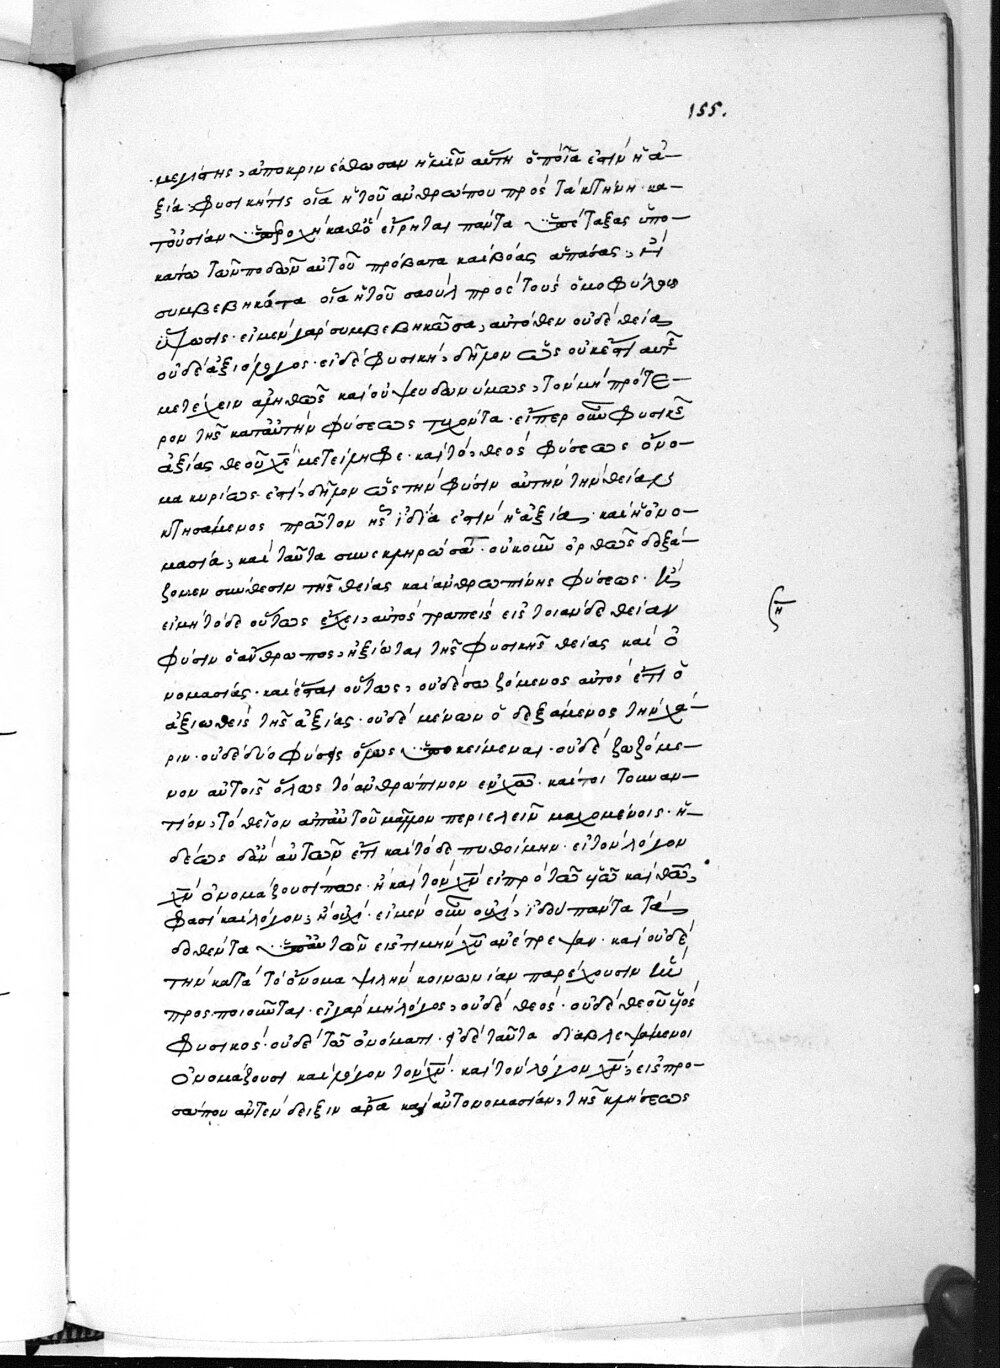 155.
μελίσης, ἀποκρινέσθωσαν ἡμῖν αὕτη ὁποῖα ἐστὶν ἡ ἀ-
ξία· φυσικήτις οἵα ἡ τοῦ ἀνθρώπου πρὸς τὰ κτήνη· κα-
τουσίαν ὑπεροχὴ καθὸ εἴρηται πάντα ὑπέταξας ὑπο-
κάτω τῶν ποδῶν αὐτοῦ πρόβατα καὶ βόας ἁπάσας, ἢ
συμβεβηκότα οἵα ἡ τοῦ σαοὺλ πρὸς τοὺς ὁμοφύλους
ὕψωσις· εἰ μὲν γὰρ συμβεβηκῶσα, αὐτόθεν οὐδὲ θεία
οὐδὲ ἀξιόλογος· εἰ δὲ φυσικὴ, δῆλον ὡς οὐκ ἔστι αὐτῆς
μετέχειν ἀληθῶς καὶ οὐ ψευδωνύμως, τὸν μὴ πρότε-
ρον τῆς κατ' αὐτὴν φύσεως τυχόντα· εἴπερ οὖν φυσικῆς
ἀξίας θεοῦ χς μετείληφε· καὶ τὸ, θεὸς φύσεως ὄνο-
μα κυρίως ἐστὶ, δῆλον ὡς τὴν φύσιν αὐτὴν τὴν θείαν
κτησάμενος πρῶτον ἧς ἰδία ἐστὶν ἡ ἀξία· καὶ ἡ ὀνο-
μασία, καὶ ταῦτα συνεκληρώσατο· οὐκοῦν ὀρθῶς δοξά-
ζομεν σύνθεσιν τῆς θείας καὶ ἀνθρωπίνης φύσεως·
εἰ μὴ τόδε οὕτως ἔχει, αὐτὸς τραπεὶς εἰς τοιάνδε θείαν
φύσιν ὁ ἄνθρωπος, ἠξίωται τῆς φυσικῆς θείας καὶ ὀ
νομασίας· καὶ ἔσται οὕτως, οὐδὲ σωζόμενος αὐτὸς ἔτι ὁ
ἀξιωθεὶς τῆς ἀξίας· οὐδὲ μένων ὁ δεξάμενος τὴν χά-
ριν· οὐδὲ δύο φύσεις ὅλως ὑποκείμεναι· οὐδὲ σωζόμε-
νον αὐτοῖς ὅλως τὸ ἀνθρώπινον ἐν χῶ· καί τοι τουναν-
τίον, τὸ θεῖον ἀπ' αὐτοῦ μᾶλλον περιελεῖν μαχομένοις· ἡ-
δέως δ' ἂν αὐτῶν ἔτι καὶ τόδε πυθοίμην· εἰ τὸν λόγον
χν ὀνομάζουσί πως· ἢ καὶ τὸν χν εἰ πρὸ τοῦ
φασὶ καὶ λόγον, ἢ οὐχί· εἰ μὲν οὖν οὐχὶ, ἰδοὺ πάντα τὰ
δοθέντα ὑπ' αὐτῶν εἰς τιμὴν χῦ ἀνέτρεψαν· καὶ οὐδὲ
τὴν κατὰ τὸ ὄνομα ψιλὴν κοινωνίαν παρέχουσιν ἣν
προσποιοῦνται· εἰ γὰρ μὴ λόγος, οὐδὲ θεὸς· οὐδὲ θεοῦ υς
φυσικὸς· οὐδὲ τῶ ὀνόματι· εἰ δὲ ταῦτα διαβλεψάμενοι
ὀνομάζουσι καὶ λόγον τὸν χν· καὶ τὸν λόγον χν, εἰς προ-
σώπου αὐτὴν δεῖξιν ἄρα καὶ αὐτονομασίαν, τῆς κλήσεως